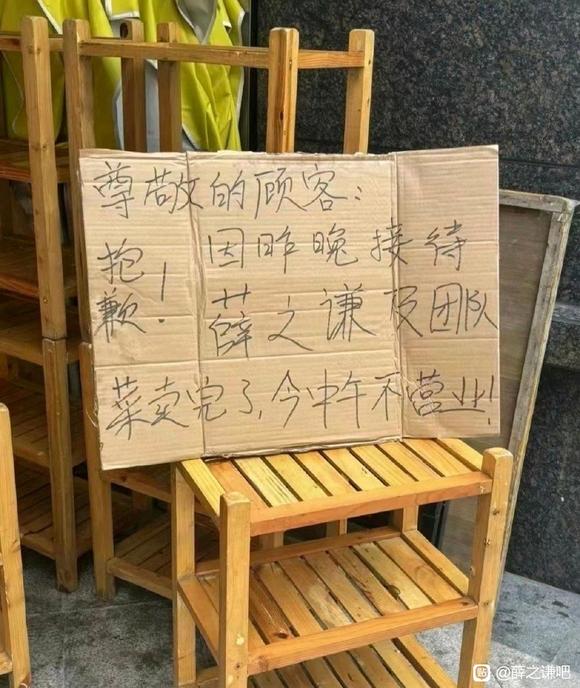 尊敬的顾客:
抱歉! 因昨晚接待
薛之谦及团队
菜卖完了,今中午不营业!
贴 @薛之谦吧